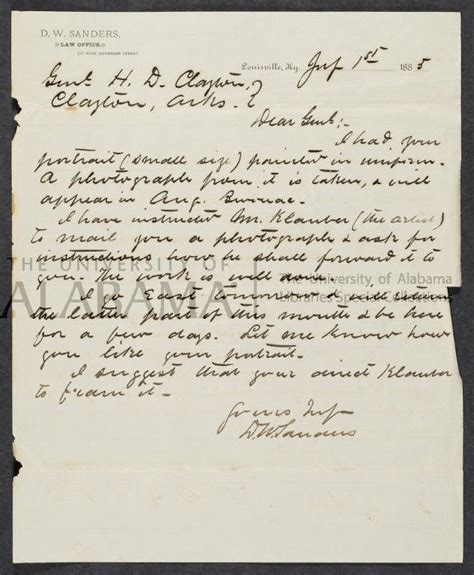 D. W. SANDERS,
LAW OFFICE,
Louisville, Ky. July 1st 1885
Genl. H. D. Clayton,
Clayton,
Dear Genl:-
I had your
portrait (small size) painted in uniform.
A photograph from it is taken, & will
appear in Aug.
I have instructed Mr. Klauber (the artist)
to mail you a photograph & ask for
instructions how he shall forward it to
you. The work is well done.
I go East tomorrow & will
the latter part of this month & be here
for a few days. Let me know how
you like your portrait.
I suggest that you direct Klauber
to frame it.
Yours Truly
D.W. Sanders
THE UNIVERSITY OF
ALABAMA
The University of Alabama
Libraries Special Collections